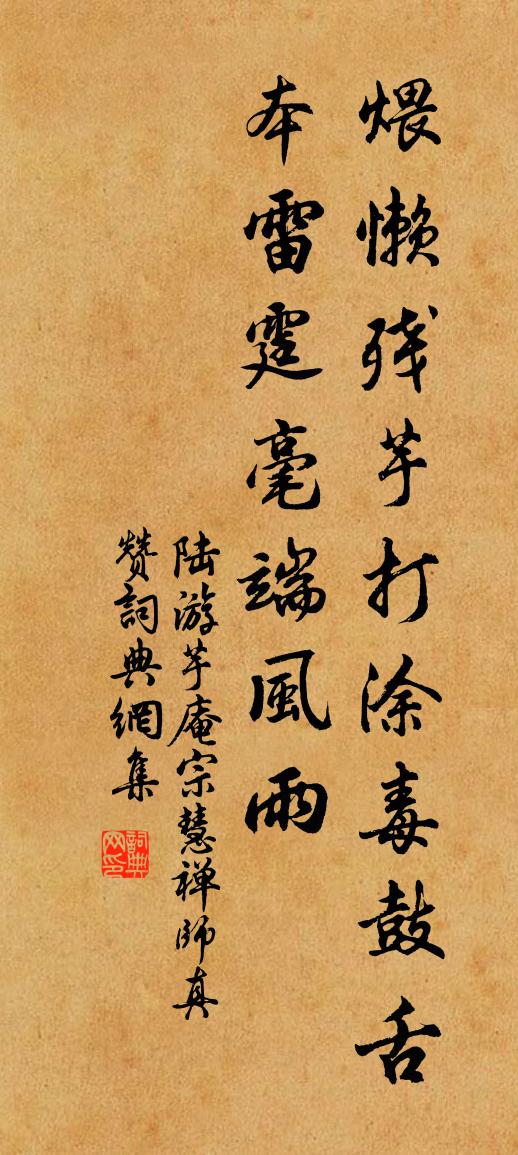 煨懒残芋打涂毒鼓舌
本雷霆毫端風雨
陆游芋庵宗慧禅师真
赞詞典網集
詞典
网印